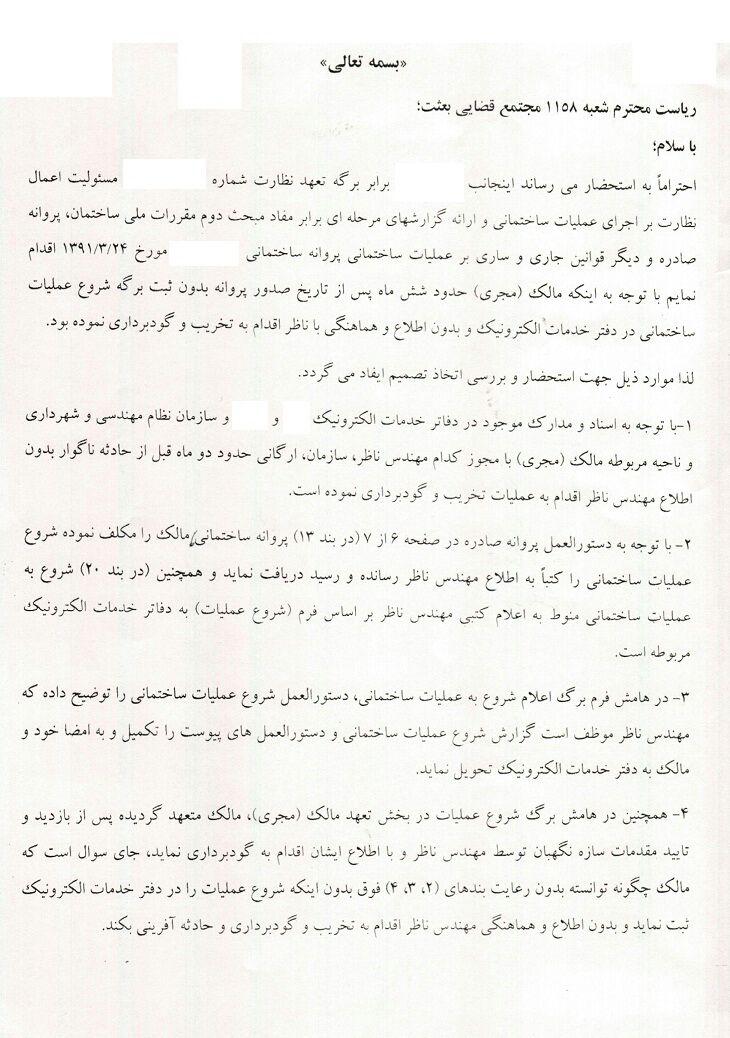 «بسمه تعالی»
ریاست محترم شعبه ۱۱۵۸ مجتمع قضایی بعثت؛
با سلام؛
احتراماً به استحضار می رساند اینجانب برابر برگه تعهد نظارت شماره مسئولیت اعمال
نظارت بر اجرای عملیات ساختمانی و ارائه گزارشهای مرحله ای برابر مفاد مبحث دوم مقررات ملی ساختمان، پروانه
صادره و دیگر قوانین جاری و ساری بر عملیات ساختمانی پروانه ساختمانی مورخ ۱۳۹۱/۳/۲۴ اقدام
نمایم با توجه به اینکه مالک (مجری) حدود شش ماه پس از تاریخ صدور پروانه بدون ثبت برگه شروع عملیات
ساختمانی در دفتر خدمات الکترونیک و بدون اطلاع و هماهنگی با ناظر اقدام به تخریب و گودبرداری نموده بود.
لذا موارد ذیل جهت استحضار و بررسی اتخاذ تصمیم ایفاد می گردد.
۱-با توجه به اسناد و مدارک موجود در دفاتر خدمات الکترونیک و و سازمان نظام مهندسی و شهرداری
و ناحیه مربوطه مالک (مجری) با مجوز کدام مهندس ناظر، سازمان، ارگانی حدود دو ماه قبل از حادثه ناگوار بدون
اطلاع مهندس ناظر اقدام به عملیات تخریب و گودبرداری نموده است.
۲- با توجه به دستورالعمل پروانه صادره در صفحه ۶ از ۷ (در بند ۱۳) پروانه ساختمانی مالک را مکلف نموده شروع
عملیات ساختمانی را کتباً به اطلاع مهندس ناظر رسانده و رسید دریافت نماید و همچنین (در بند ۲۰) شروع به
عملیات ساختمانی منوط به اعلام کتبی مهندس ناظر بر اساس فرم (شروع عملیات) به دفاتر خدمات الکترونیک
مربوطه است.
۳- در هامش فرم برگ اعلام شروع به عملیات ساختمانی، دستورالعمل شروع عملیات ساختمانی را توضیح داده که
مهندس ناظر موظف است گزارش شروع عملیات ساختمانی و دستورالعمل های پیوست را تکمیل و به امضا خود و
مالک به دفتر خدمات الکترونیک تحویل نماید.
۴- همچنین در هامش برگ شروع عملیات در بخش تعهد مالک (مجری)، مالک متعهد گردیده پس از بازدید و
تایید مقدمات سازه نگهبان توسط مهندس ناظر و با اطلاع ایشان اقدام به گودبرداری نماید، جای سوال است که
مالک چگونه توانسته بدون رعایت بندهای (۲، ۳، ۴) فوق بدون اینکه شروع عملیات را در دفتر خدمات الکترونیک
ثبت نماید و بدون اطلاع و هماهنگی مهندس ناظر اقدام به تخریب و گودبرداری و حادثه آفرینی بکند.